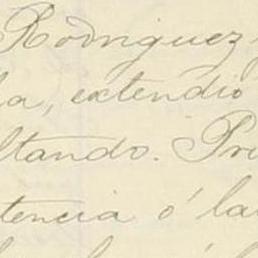 Rodriguez
la, extendio
ltando. Pri
tencia ó la